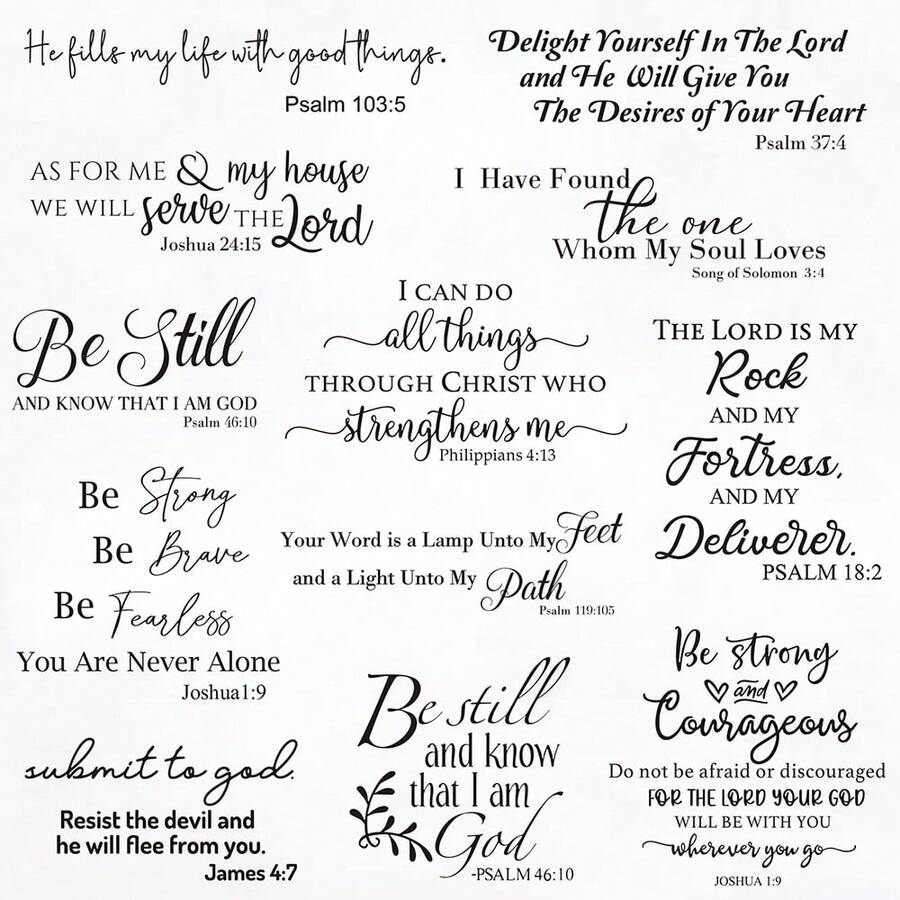 He fills my life with good things.
Psalm 103:5
Delight Yourself In The Lord
and He Will Give You
The Desires of Your Heart
Psalm 37:4
AS FOR ME & my house
WE WILL serve THE Lord
Joshua 24:15
I Have Found
the one
Whom My Soul Loves
Song of Solomon 3:4
Be Still
AND KNOW THAT I AM GOD
Psalm 46:10
I CAN DO
all things
THROUGH CHRIST WHO
strengthens me
Philippians 4:13
THE LORD IS MY
Rock
AND MY
Fortress,
AND MY
Deliverer.
PSALM 18:2
Be Strong
Be Brave
Be Fearless
You Are Never Alone
Joshua1:9
Your Word is a Lamp Unto My Feet
and a Light Unto My Path
Psalm 119:105
submit to god.
Resist the devil and
he will flee from you.
James 4:7
Be still
and know
that I am
God
-PSALM 46:10
Be strong
and
Courageous
Do not be afraid or discouraged
FOR THE LORD YOUR GOD
WILL BE WITH YOU
wherever you go
JOSHUA 1:9